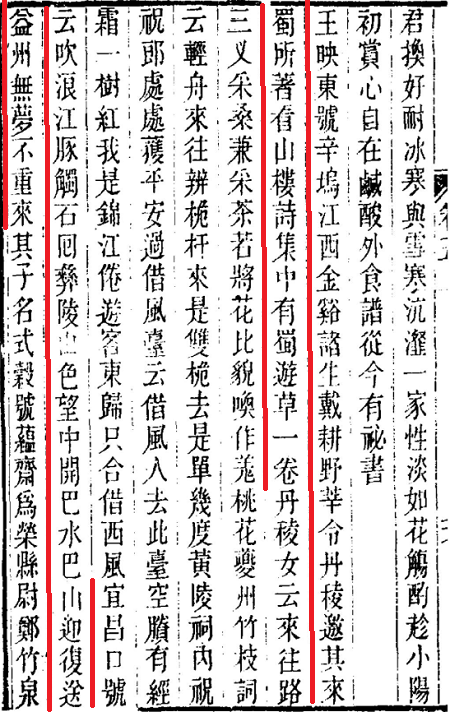 君換好耐冰寒與雪寒沆瀣一家性淡如花觴酌趁小陽
初賞心自在鹹酸外食譜從今有祕書
王映東號辛塢江西金谿諸生戴耕野莘令丹稜邀其來
蜀所著看山樓詩集中有蜀遊草一卷丹稜女云來往路
三义采桑兼采茶若將花比貌喚作羗桃花夔州竹枝詞
云輕舟來往辨桅杆來是雙桅去是單幾度黃陵祠內祝
祝郎處處獲平安過借風臺云借風人去此臺空賸有經
霜一樹紅我是錦江倦遊客東歸只合借西風宜昌口號
云吹浪江豚觸石囘彝陵山色望中開巴水巴山迎復送
益州無夢不重來其子名式穀號蘊齋爲榮縣尉鄭竹泉